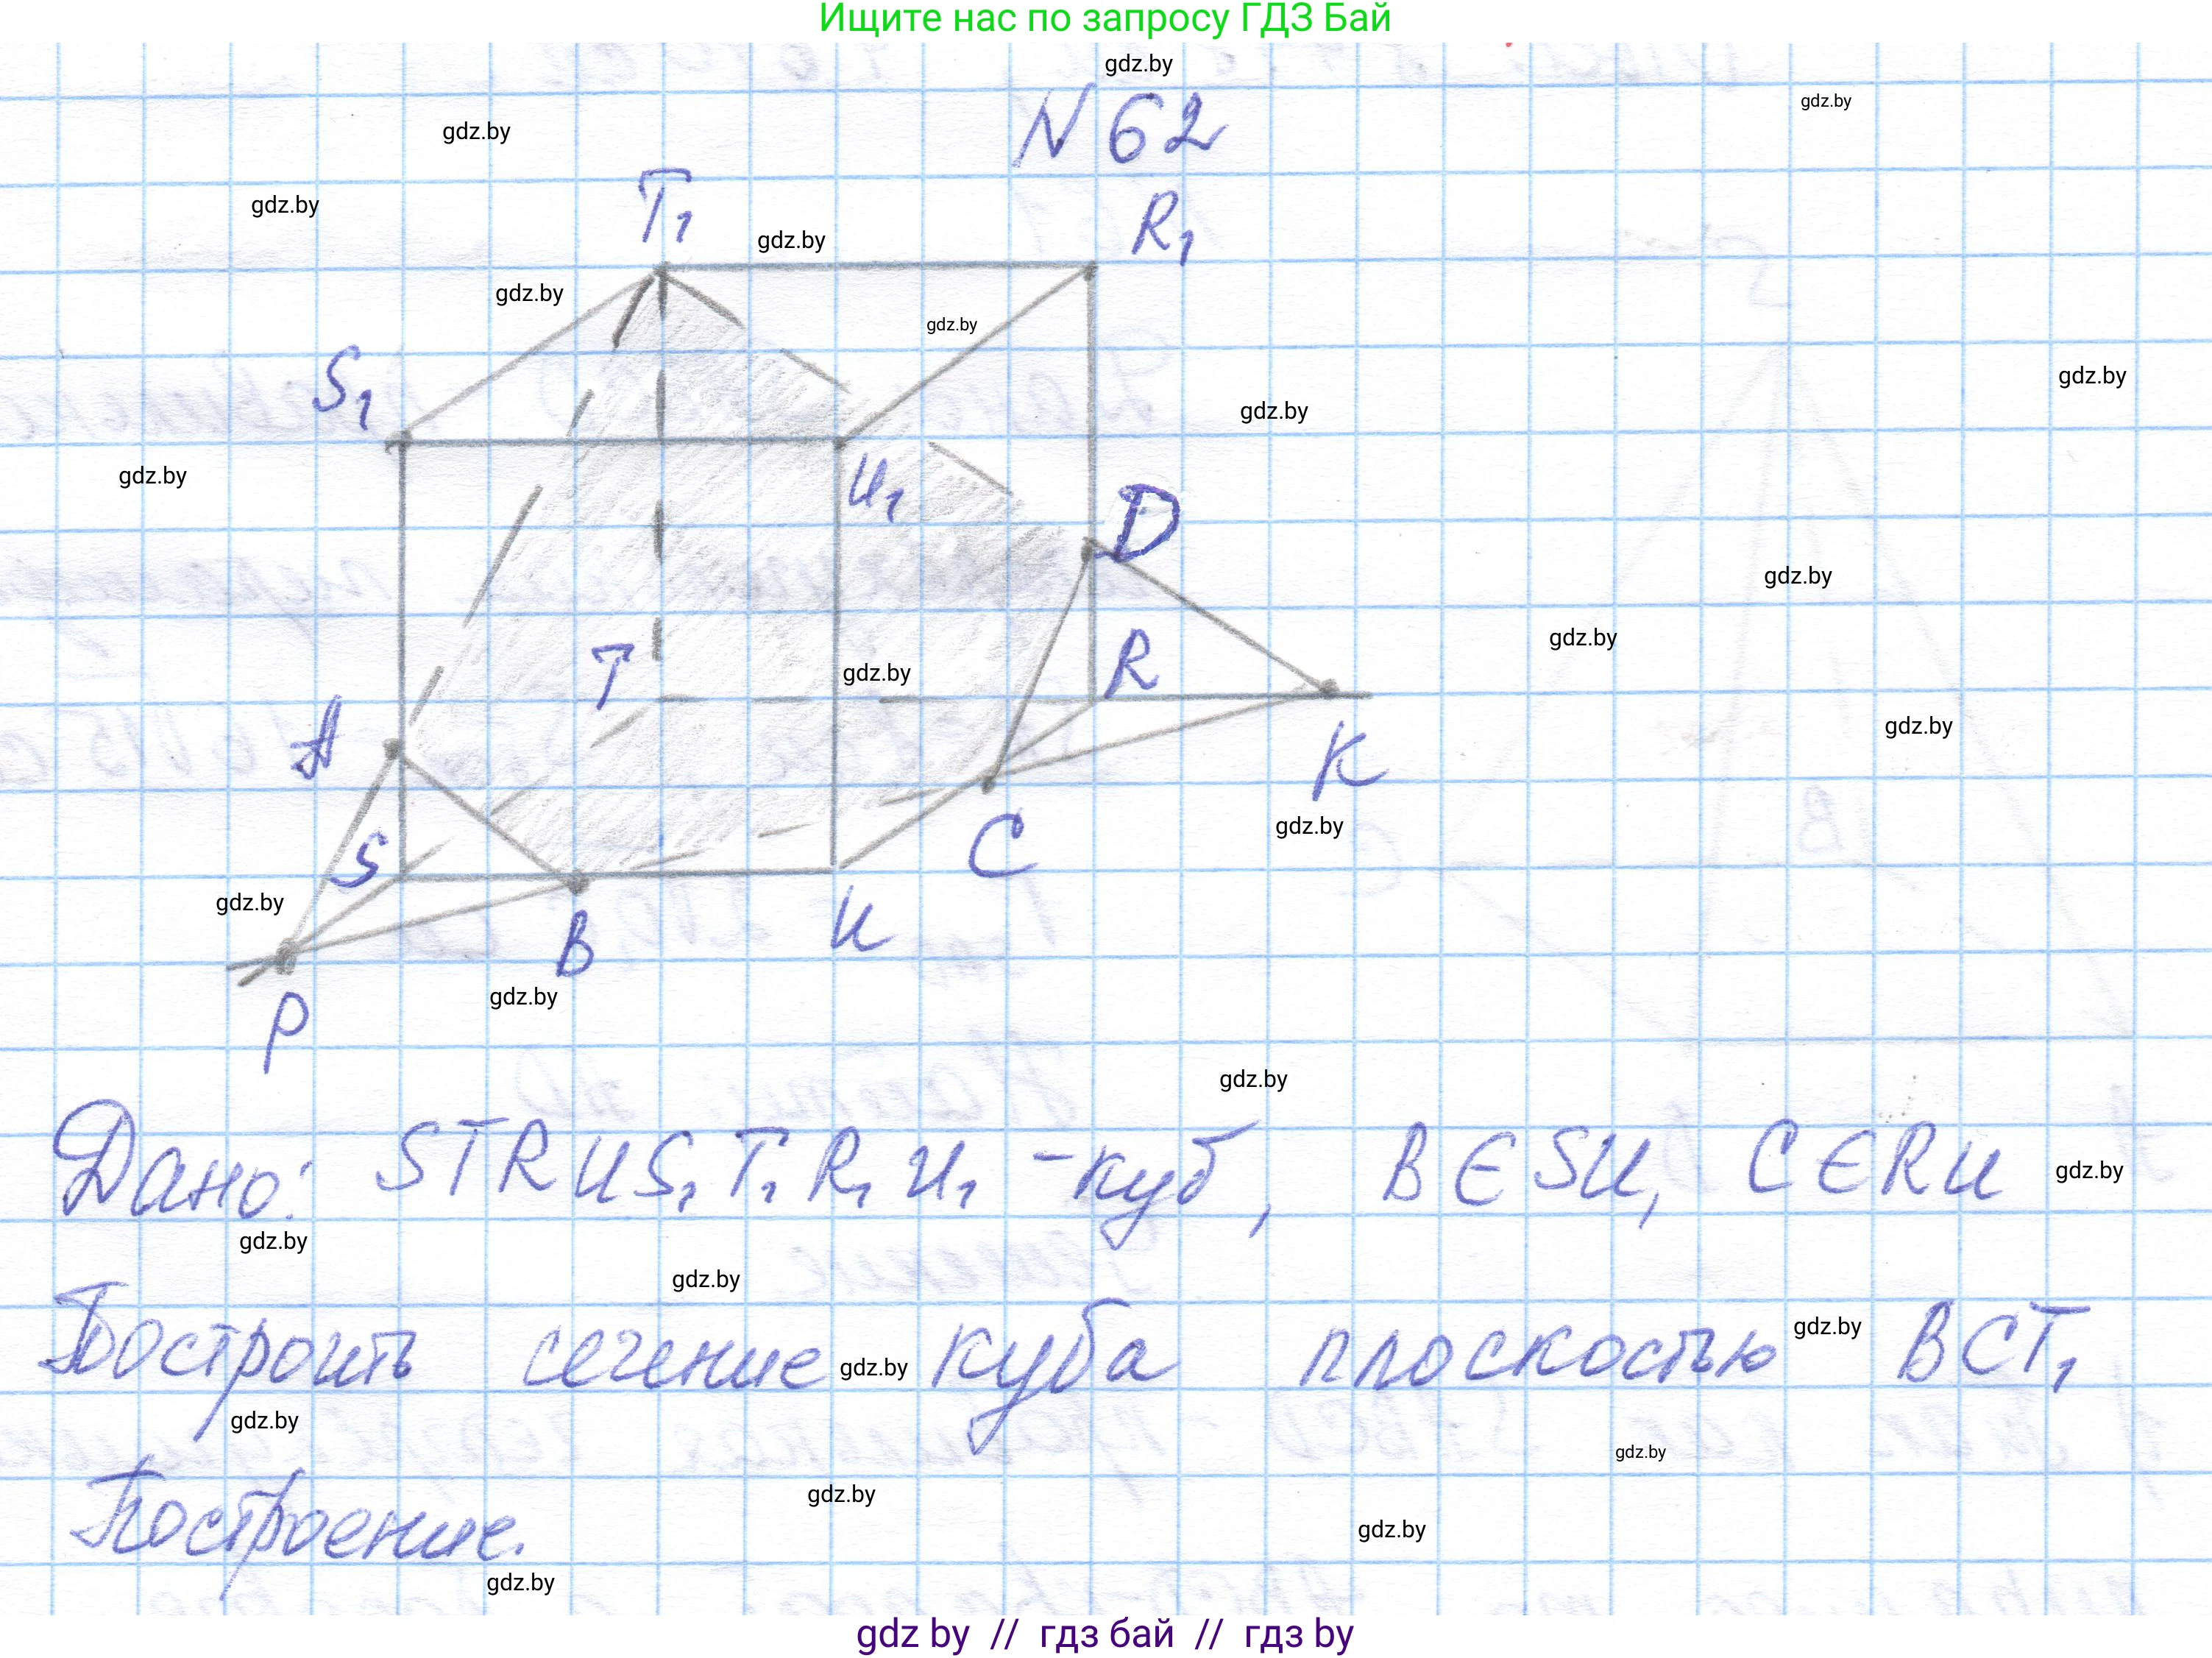 Ищите нас по запросу ГДЗ Бай
gdz.by
gdz.by
gdz.by
N 62
gdz.by
T₁
R₁
gdz.by
gdz.by
gdz.by
S₁
gdz.by
gdz.by
gdz.by
U₁
D
gdz.by
gdz.by
T
gdz.by
R
A
gdz.by
K
S
C
gdz.by
gdz.by
B
U
gdz.by
P
gdz.by
Дано: STRUS₁T₁R₁U₁ - куб, B ∈ SU, C ∈ RU
gdz.by
gdz.by
gdz.by
Построить сечение куба плоскостью BCT₁
gdz.by
gdz.by
gdz.by
gdz.by
gdz.by
Построение.
gdz.by
gdz.by
gdz by // гдз бай // гдз by